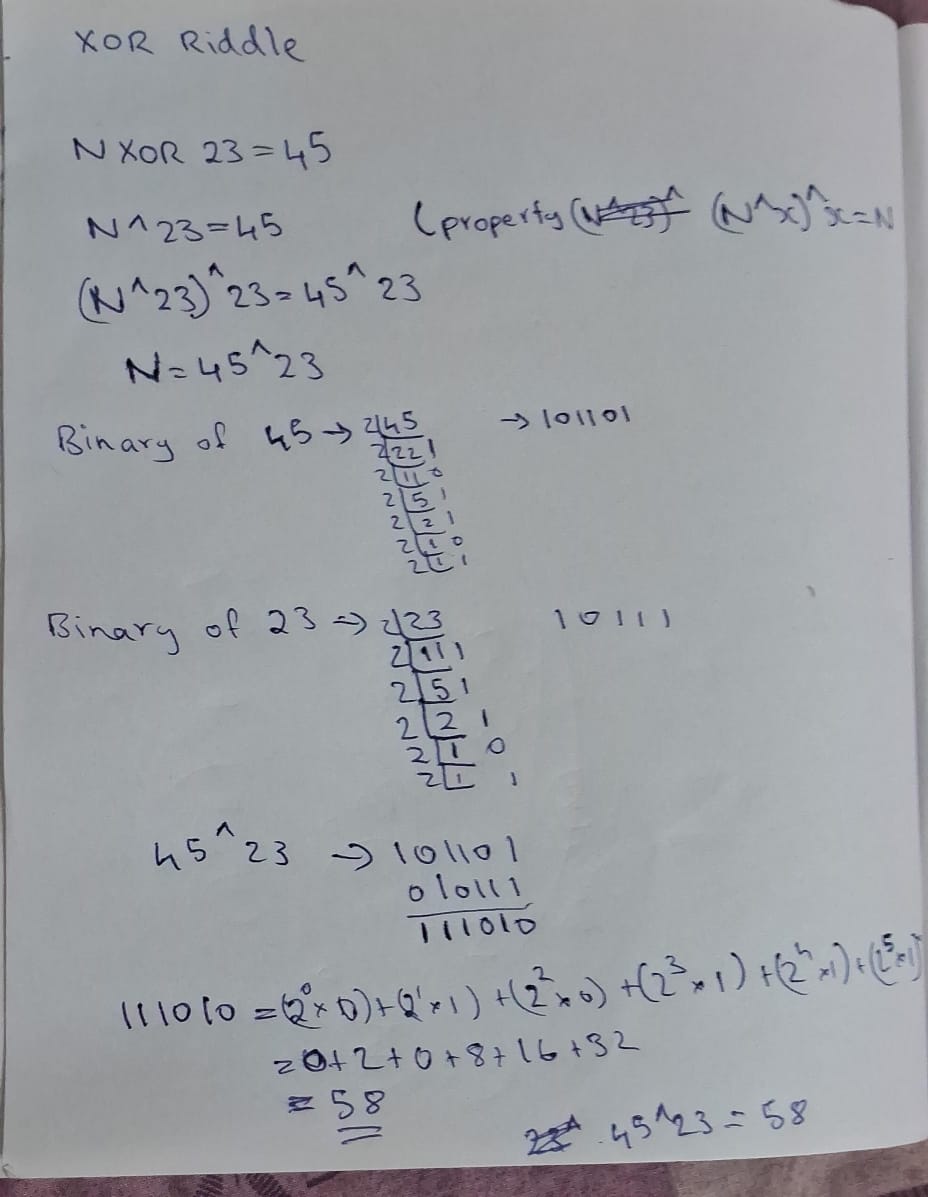 XOR Riddle
N XOR 23 = 45
N ^ 23 = 45 (property (N^x)^x = N
(N^23)^23 = 45^23
N = 45^23
Binary of 45 → 2 45 → 101101
2 22 1
2 11 0
2 5 1
2 2 1
2 1 0
2 1 1
Binary of 23 → 2 23 10111
2 11 1
2 5 1
2 2 1
2 1 0
2 1 1
45^23 → 101101
010111
111010
111010 = (2⁰×0)+(2¹×1)+(2²×0)+(2³×1)+(2⁴×1)+(2⁵×1)
= 0+2+0+8+16+32
= 58
45^23 = 58